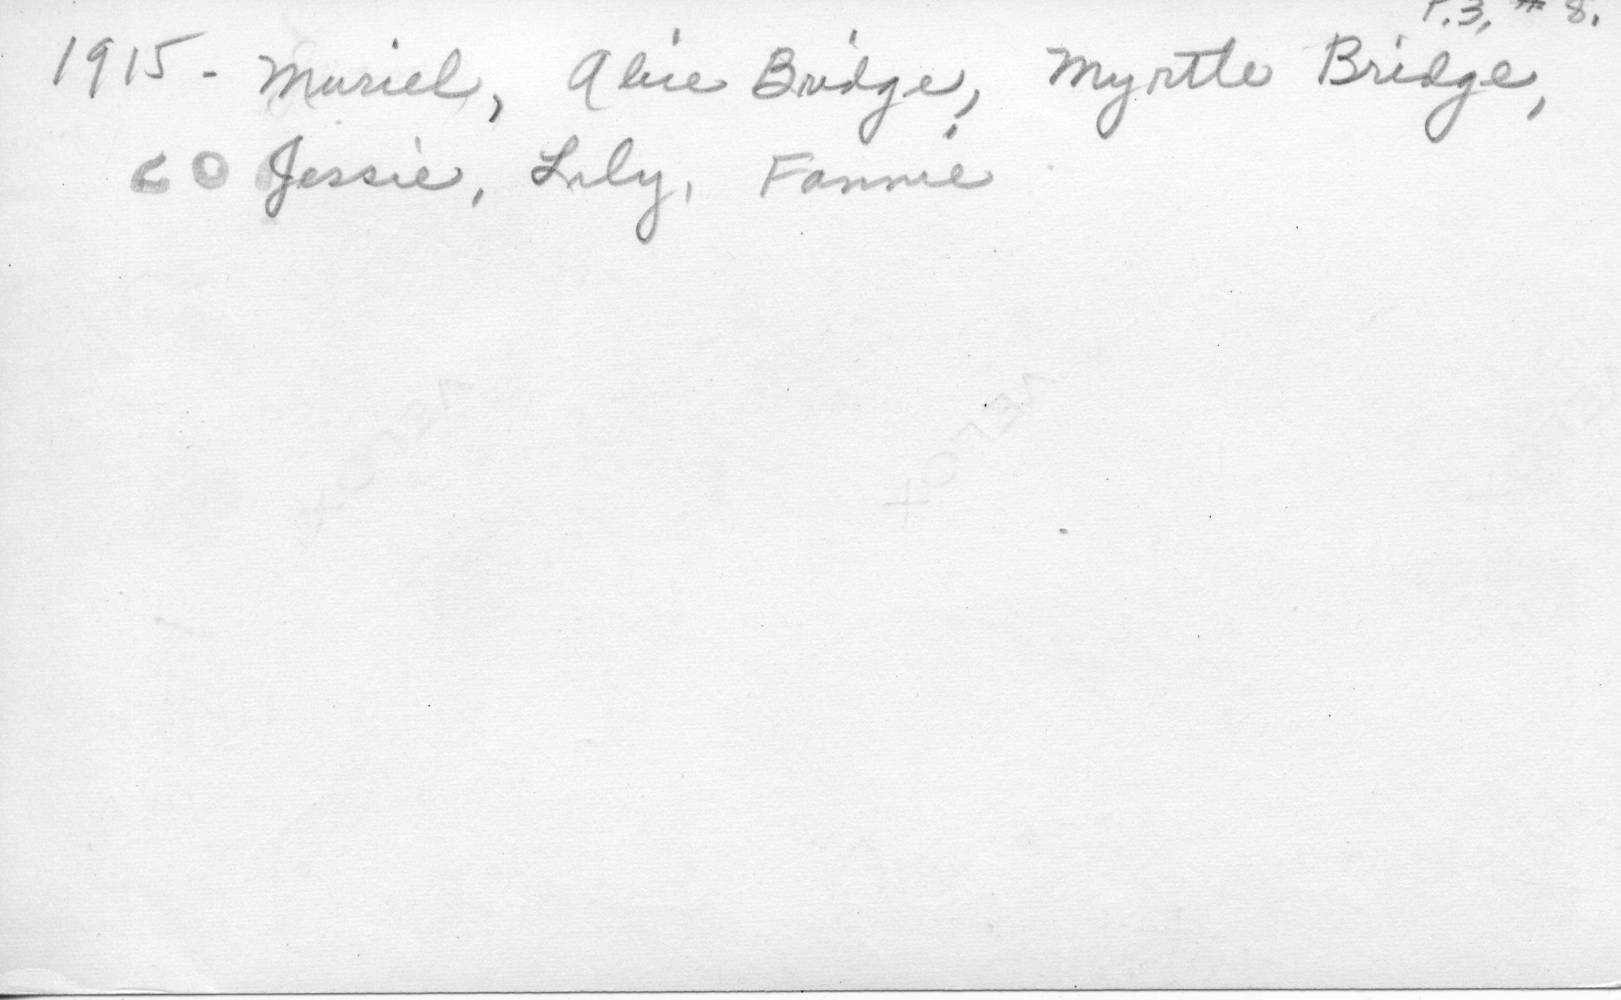 P.3, # 8.
1915 - Muriel, Alice Bridge, Myrtle Bridge,
Jessie, Lily, Fannie
VELOX
VELOX
VELOX